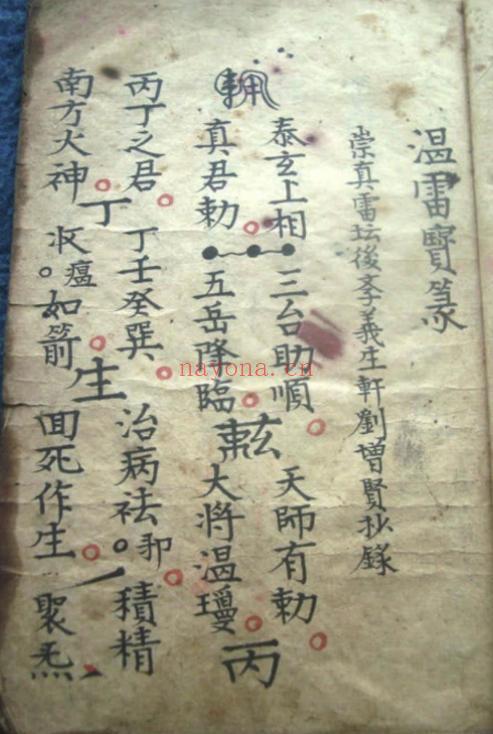 温雷寶篆
崇真雷坛後斈義生軒劉增賢抄錄
泰玄上相 三台助順 天師有勅
真君勅 五岳降臨 大将温瓊
丙
丙丁之君 丁壬癸巽 治病祛邪 積精
丁
生
南方火神 收瘟如箭 回死作生 聚炁
nayona.cn